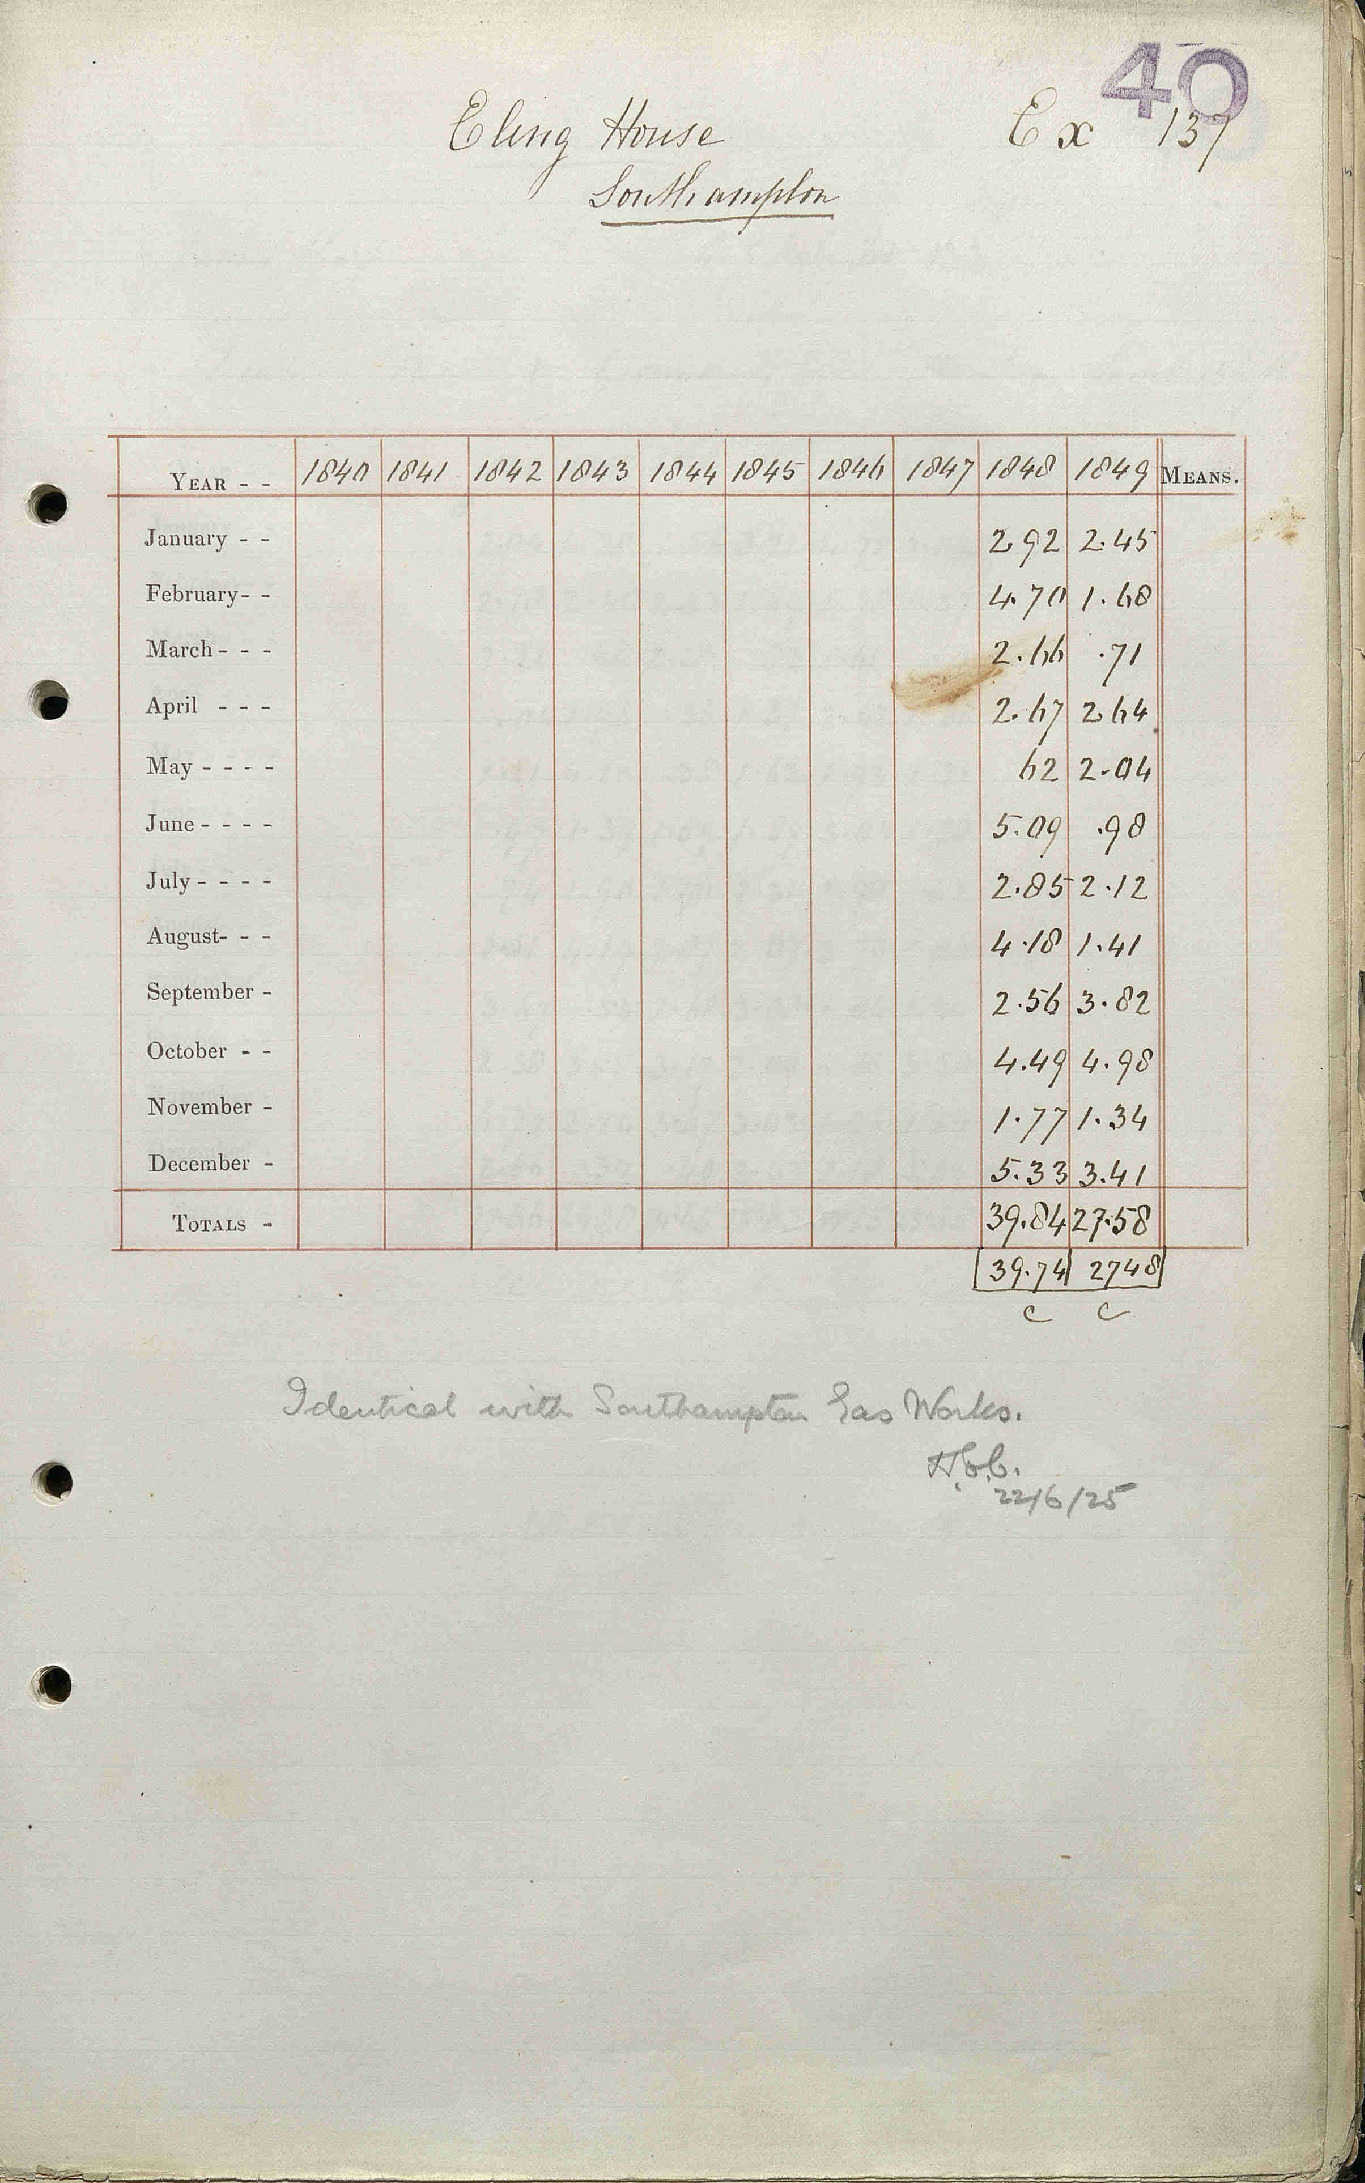 40
Eling House Ex 137
Southampton
YEAR - - 1840 1841 1842 1843 1844 1845 1846 1847 1848 1849 MEANS.
January - - 2.92 2.45
February- - 4.70 1.68
March - - - 2.66 .71
April - - - 2.67 2.64
May - - - - 62 2.04
June - - - - 5.09 .98
July - - - - 2.85 2.12
August- - - 4.18 1.41
September - 2.56 3.82
October - - 4.49 4.98
November - 1.77 1.34
December - 5.33 3.41
TOTALS - 39.84 27.58
39.74 2748
c c
Identical with Southampton Gas Works.
22/6/25